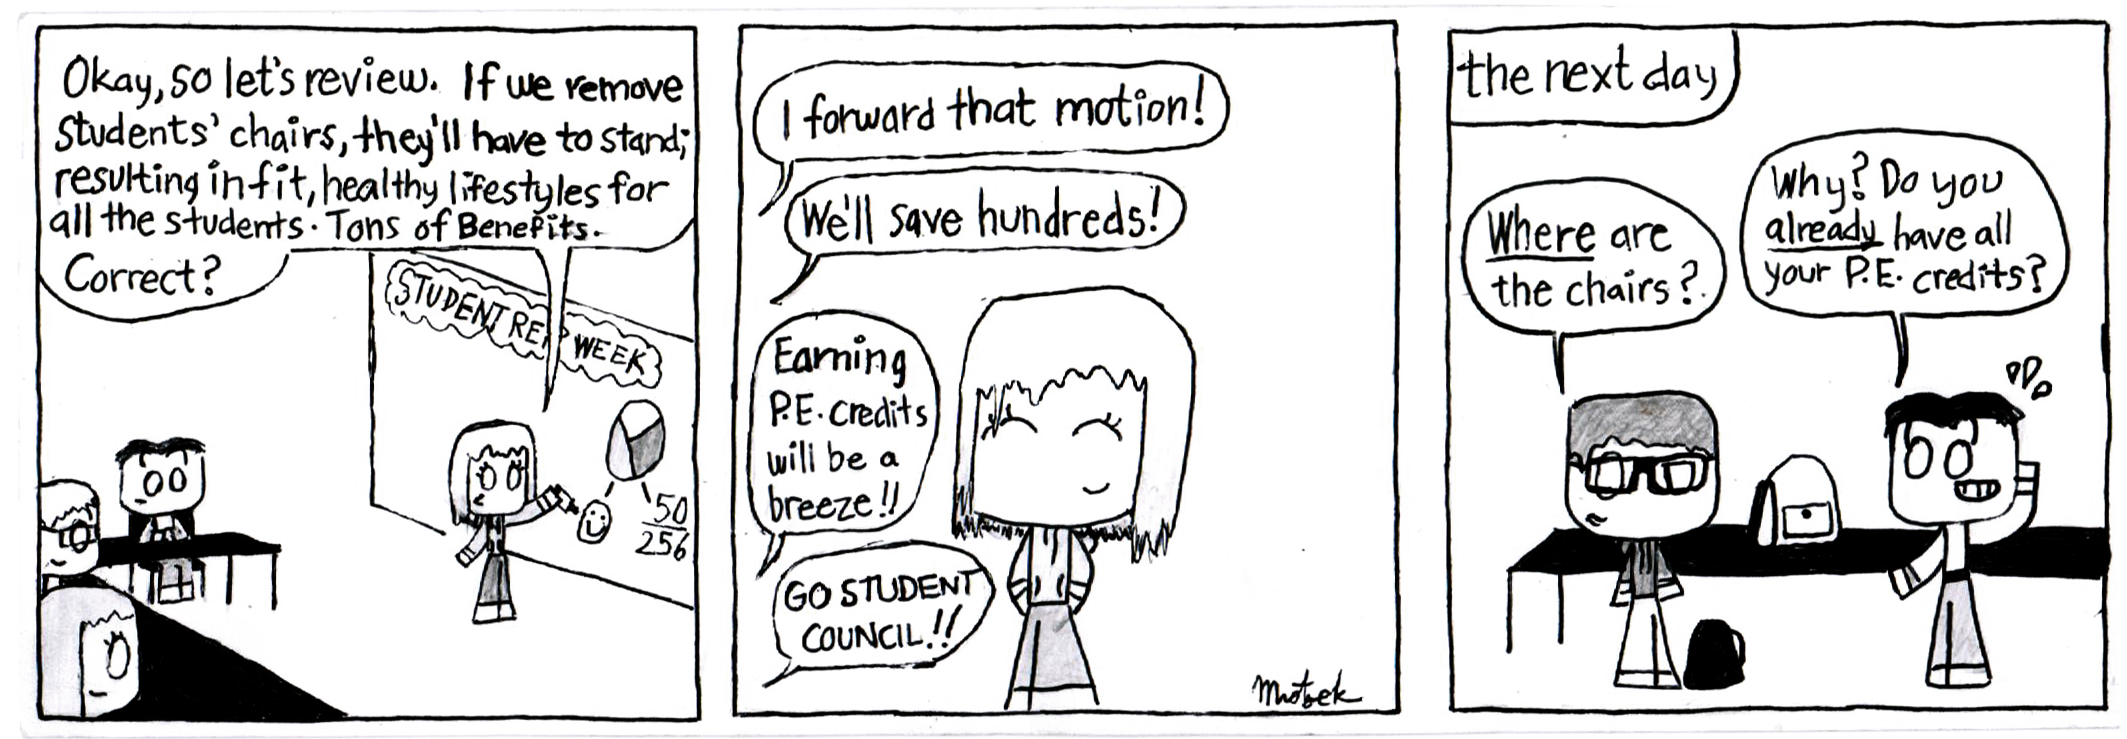 Okay, so let's review. If we remove
students' chairs, they'll have to stand;
resulting in fit, healthy lifestyles for
all the students. Tons of Benefits.
Correct?
STUDENT REP WEEK
50
256
I forward that motion!
We'll save hundreds!
Earning
P.E. credits
will be a
breeze!!
GO STUDENT
COUNCIL!!
the next day
Where are
the chairs?
Why? Do you
already have all
your P.E. credits?